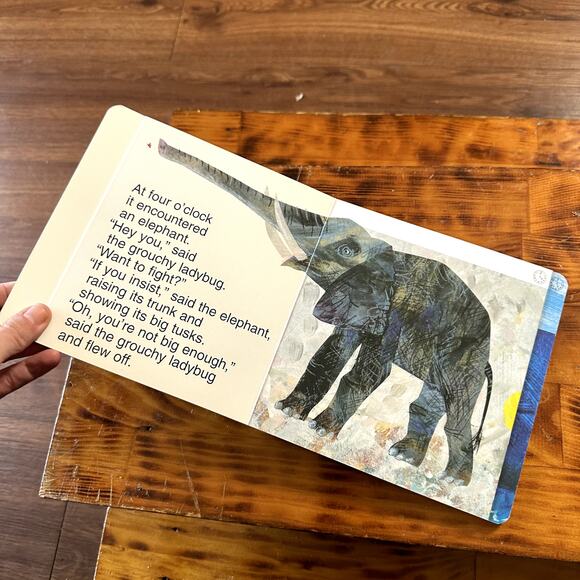 At four o'clock
it encountered
an elephant.
"Hey you," said
the grouchy ladybug.
"Want to fight?"
"If you insist," said the elephant,
raising its trunk and
showing its big tusks.
"Oh, you're not big enough,"
said the grouchy ladybug
and flew off.